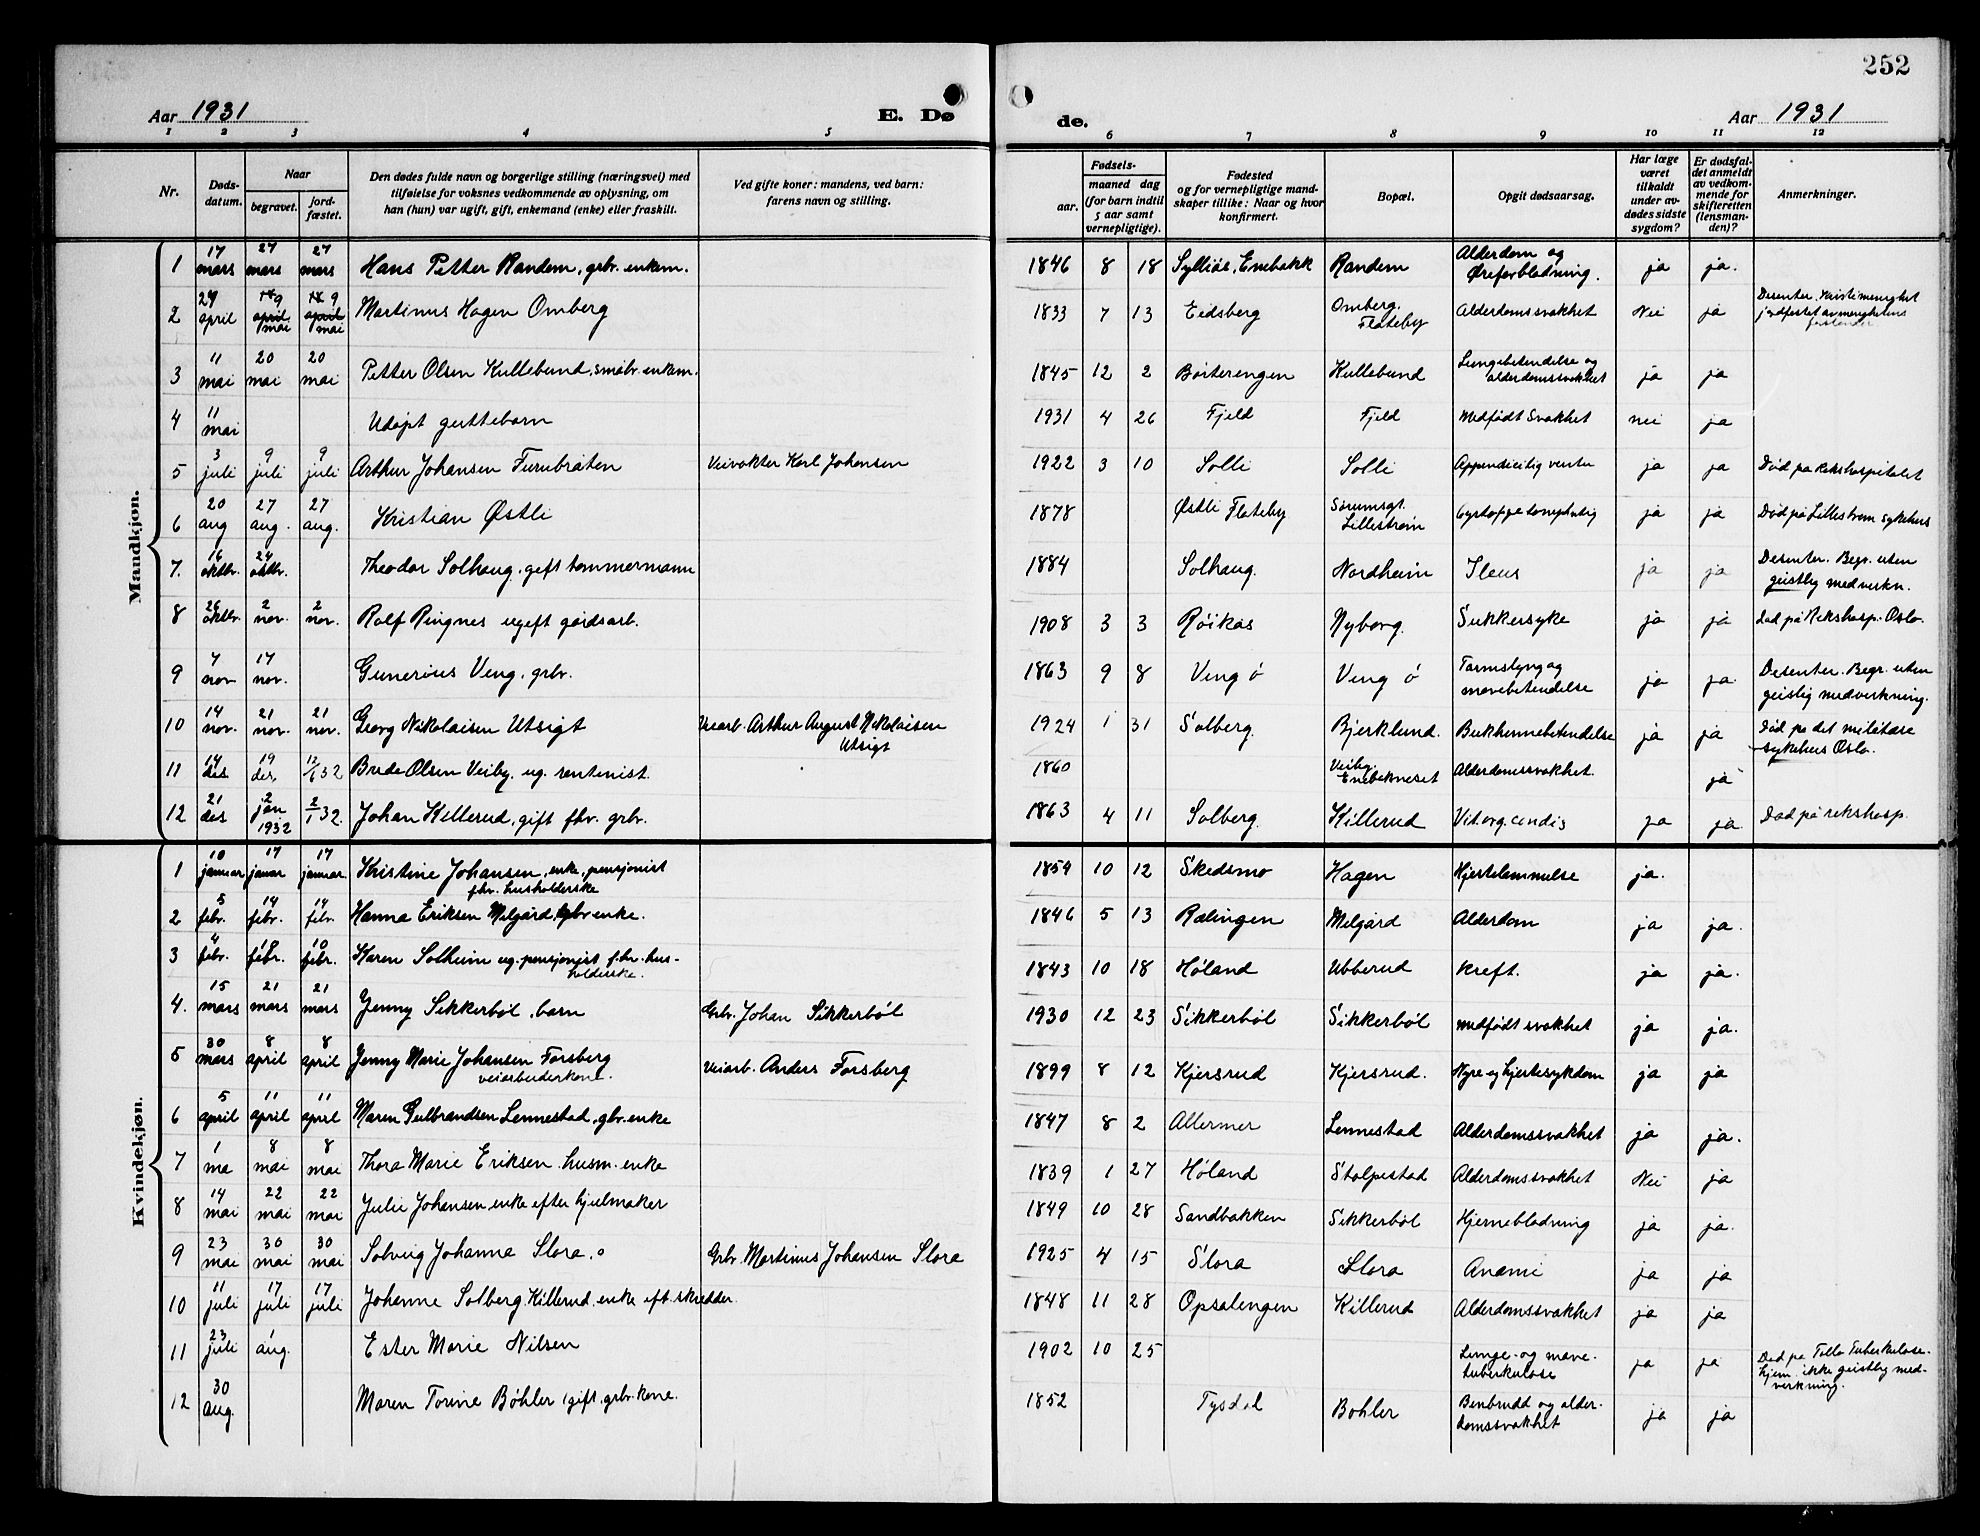 252
Aar 1931 E. Dø de. Aar 1931
1 2 3 4 5 6 7 8 9 10 11 12
Nr. Døds-datum. Naar begravet. jord-fæstet. Den dødes fulde navn og borgerlige stilling (næringsvei) med tilføielse for voksnes vedkommende av oplysning, om han (hun) var ugift, gift, enkemand (enke) eller fraskilt. Ved gifte koner: mandens, ved barn: farens navn og stilling. Fødsels- aar. maaned dag (for barn indtil 5 aar samt vernepligtige). Fødested og for vernepligtige mandskaper tillike: Naar og hvor konfirmert. Bopæl. Opgit dødsaarsag. Har læge været tilkaldt under avdødes sidste sygdom? Er dødsfaldet anmeldt av vedkommende for skifteretten (lensmanden)? Anmerkninger.
Mandkjøn.
1 17 mars 27 mars 27 mars Hans Petter Randem, grbr. enkem. 1846 8 18 Sylliås, Enebakk Randem Alderdom og Øreforblødning. ja ja.
2 24 april 18 9 april mai 18 9 april mai Martinus Hagen Omberg 1833 7 13 Eidsberg Omberg, Flateby Alderdomssvakhet Nei ja Desenter. Kristi menighet jordfestet av menighetens
3 11 mai 20 mai 20 mai Petter Olsen Kullebund, småbr. enkem. 1845 12 2 Börterengen Kullebund Lungebetendelse og alderdomssvakhet ja ja
4 11 mai Udöpt guttebarn 1931 4 26 Fjeld Fjeld Medfödt svakhet nei ja
5 3 juli 9 juli 9 juli Arthur Johansen Furubråten Veivokter Karl Johansen 1922 3 10 Solli Solli ja ja Död på Rikshospitalet
6 20 aug 27 aug. 27 aug. Kristian Østli 1878 Østli Flateby Sörumsgt. Lilleström ja ja Död på Lilleström sykehus
7. 16 oktbr. 24 oktbr. Theodor Solhaug, gift tømmermann 1884 Solhaug. Nordheim Ileus ja ja Desenter. Begr. uten geistlig medverkn.
8 26 oktbr. 2 nov. 2 nov. Rolf Ringnes ugift gårdsarb. 1908 3 3 Röikås Nyborg. Sukkersyke ja ja död på Rikshosp. Oslo.
9 7 nov 17 nov. Gunerius Veng, grbr. 1863 9 8 Veng ö Veng ö Tarmslyng og mavebetendelse ja ja Desenter. Begr. uten geislig medverkning.
10 14 nov. 21 nov. 21 nov. Georg Nikolaisen Utsigt Veiarb. Arthur August Nikolaisen Utsigt 1924 1 31 Solberg. Bjerklund. Bukhinnebetendelse ja ja Död på det militære sykehus Oslo.
11 14 des 19 des. 12/1 32 Brede Olsen Veiby, ug. rentenist. 1860 Veiby. Enebakneset Alderdomssvakhet. ja
12 21 des 2 jan 1932 2/1 32. Johan Killerud, gift fhv. grbr. 1863 4 11 Solberg. Killerud Vit. org. cordis ja ja. Död på rikshosp.
Kvindekjøn.
1 10 januar 17 januar 17 januar Kristine Johansen, enke, pensjonist fhv. husholderske 1859 10 12 Skedsmo Hagen Hjertelammelse ja.
2 5 febr. 14 febr. 14 febr. Hanna Eriksen Melgård, gbr enke. 1846 5 13 Rælingen Melgård Alderdom ja ja.
3 4 febr. 10 febr. 10 febr. Karen Solheim ug. pensjonist fhv. husholderske. 1843 10 18 Höland Ubberud Kreft. ja ja.
4. 15 mars 21 mars 21 mars Jenny Sikkerböl, barn Grbr. Johan Sikkerböl 1930 12 23 Sikkerböl Sikkerböl medfödt svakhet ja ja.
5 30 mars 8 april 8 april Jenny Marie Johansen Forsberg veiarbeiderkone. Veiarb. Anders Forsberg 1899 8 12 Kjersrud Kjersrud. Nyre og hjertesykdom ja ja
6 5 april 11 april 11 april Maren Gulbrandsen Lennestad, gbr. enke 1847 8 2 Allermer Lennestad Alderdomssvakhet ja ja.
7 1 ma 8 mai 8 mai Thora Marie Eriksen. husm. enke 1839 1 27 Höland Stolpestad Alderdomssvakhet Nei ja
8 14 mai 22 mai 22 mai Julie Johansen enke efter hjulmaker 1849 10 28 Sandbakken Sikkerböl Hjerneblödning ja ja.
9 23 mai 30 mai 30 mai Solveig Johanna Slora. Grbr. Martinus Johansen Slora 1925 4 15 Slora Slora Anæmi ja ja
10 11 juli 17 juli 17 juli Johanne Solberg, Killerud, enke eft. skredder. 1848 11 28 Opsalengen Killerud Alderdomssvakhet ja ja
11 23 juli 1 aug. Ester Marie Nilsen 1902 10 25 Lunge- og mavetuberkulose ja ja Död på Tuberkulosehjem. ikke geistlig medverkning.
12 30 aug. Maren Torine Böhler, gift, grbr. kone. 1852 Tysdal Bohler Benbrudd og alderdomssvakhet ja ja